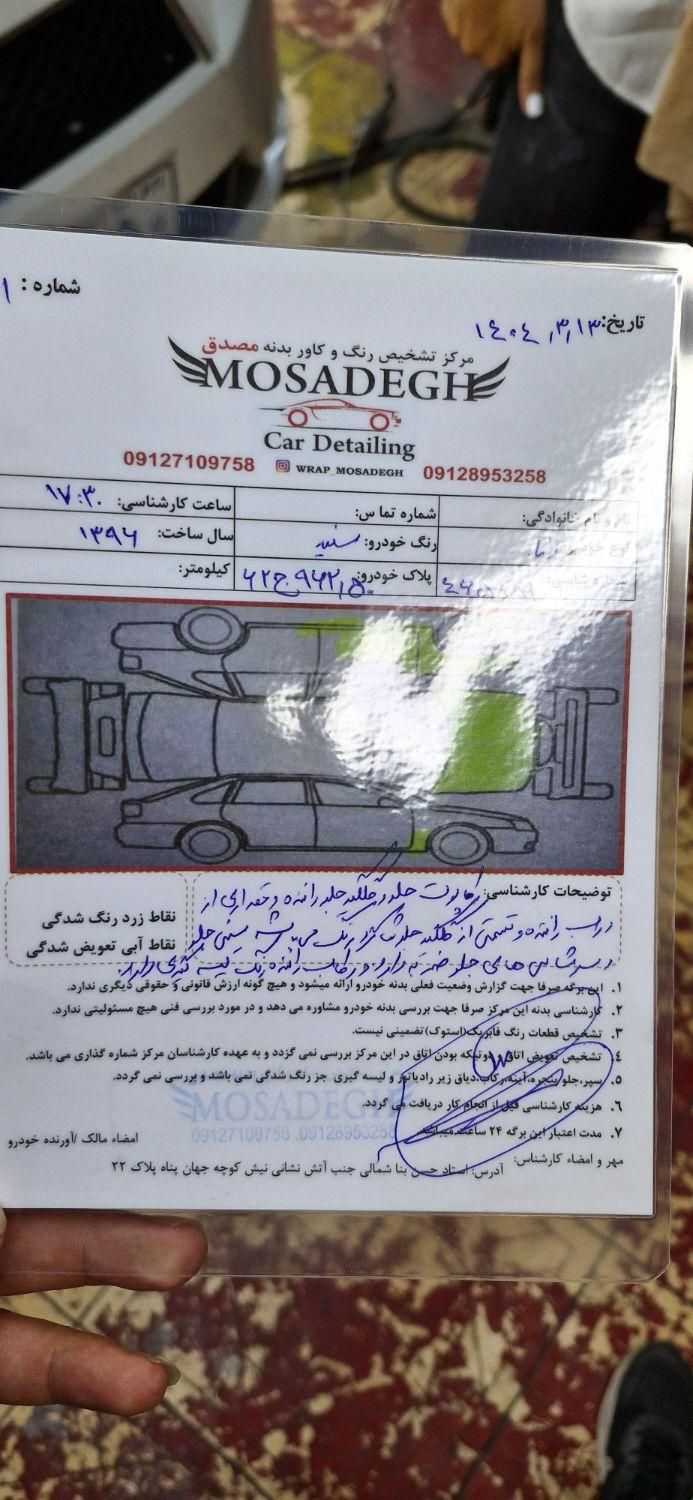 شماره :
تاریخ: ۱۴۰۴/۳/۱۳
مرکز تشخیص رنگ و کاور بدنه مصدق
MOSADEGH
Car Detailing
09127109758 WRAP_MOSADEGH 09128953258
نام و نام خانوادگی: شماره تماس: ساعت کارشناسی: ۱۷:۳۰
نوع خودرو: رنگ خودرو: سفید سال ساخت: ۱۳۹۶
شماره شاسی: پلاک خودرو: کیلومتر:
توضیحات کارشناسی: کاپوت جلو گلگیر جلو راننده و
راننده و قسمتی از گلگیر جلو شاگرد رنگ می باشد سینی جلو
و سرشاسی های جلو ضربه دارد و رکاب راننده رنگ لیسه گیری دارد.
نقاط زرد رنگ شدگی
نقاط آبی تعویض شدگی
۱. این برگه صرفا جهت گزارش وضعیت فعلی بدنه خودرو ارائه میشود و هیچ گونه ارزش قانونی و حقوقی دیگری ندارد.
۲. کارشناسی بدنه این مرکز صرفا جهت بررسی بدنه خودرو مشاوره می دهد و در مورد بررسی فنی هیچ مسئولیتی ندارد.
۳. تشخیص قطعات رنگ فابریک(استوک) تضمینی نیست.
۴. تشخیص تعویض اتاق و دوتیکه بودن اتاق در این مرکز بررسی نمی گردد و به عهده کارشناسان مرکز شماره گذاری می باشد.
۵. سپر،جلو پنجره،آینه،رکاب،دیاق زیر رادیاتور و لیسه گیری جز رنگ شدگی نمی باشد و بررسی نمی گردد.
۶. هزینه کارشناسی قبل از انجام کار دریافت می گردد.
۷. مدت اعتبار این برگه ۲۴ ساعت میباشد.
MOSADEGH
09127109758 09128953258
مهر و امضاء کارشناس:
امضاء مالک /آورنده خودرو
آدرس: استاد حسن بنا شمالی جنب آتش نشانی نبش کوچه جهان پناه پلاک ۲۲